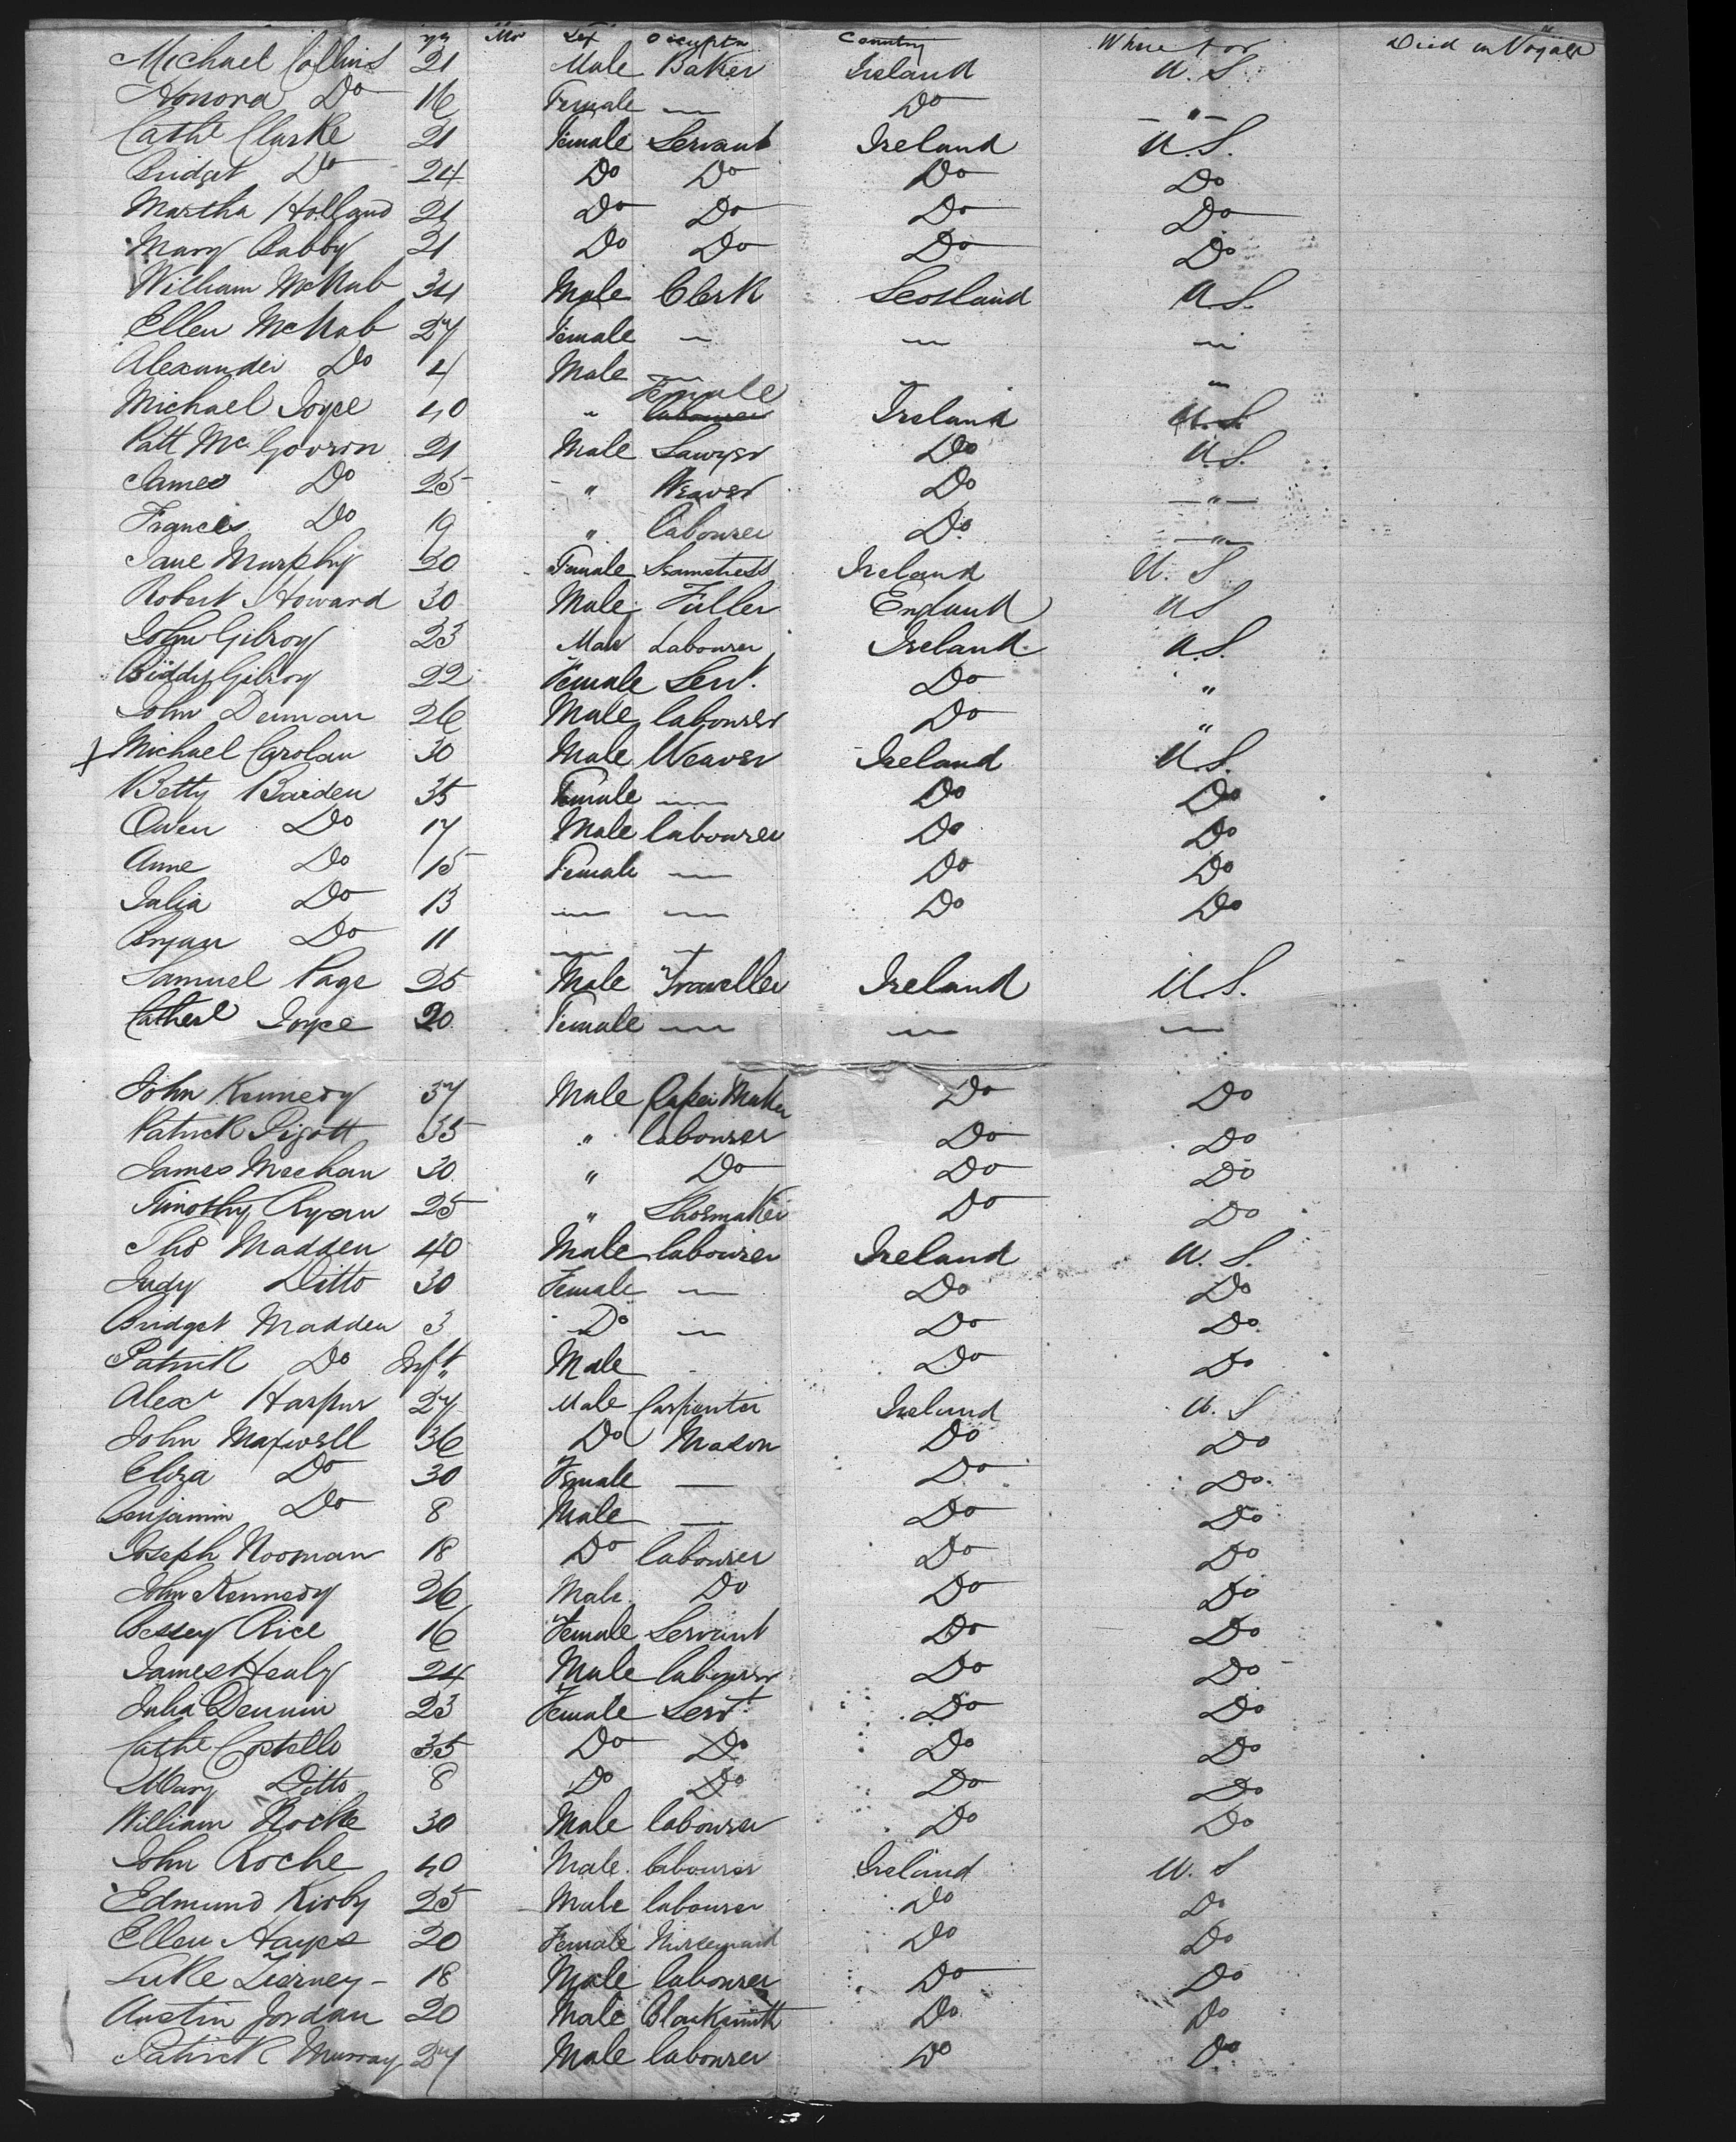 yrs Mo Sex Occuptn Country Where for Died on Voyage
Michael Collins 21 Male Baker Ireland U.S
Honora Do 16 Female — Do — " —
Cathe Clarke 21 Female Servant Ireland U.S.
Bridget Do 24 Do Do Do Do
Martha Holland 21 Do Do Do Do
Mary Rabby 21 Do Do Do Do
William McNab 34 Male Clerk Scotland U.S.
Ellen McNab 27 Female — — —
Alexander Do 4 Male — " "
Michael Joyce 40 " Female labourer Ireland U.S
Patt McGovrin 21 Male Sawyer Do U.S.
James Do 25 " Weaver Do — " —
Francis Do 19 " labourer Do — " —
Jane Murphy 20 Female Seamstress Ireland U.S
Robert Howard 30 Male Fuller England U S
John Gilroy 23 Male Labourer Ireland U.S.
Biddy Gilroy 22 Female Servt. Do "
John Dennan 26 Male labourer Do "
Michael Carolan 30 Male Weaver Ireland U.S.
Betty Baiden 35 Female — Do Do
Owen Do 17 Male labourer Do Do
Anne Do 15 Female — Do Do
Julia Do 13 — — Do Do
Bryan Do 11 — —
Samuel Page 25 Male Traveller Ireland U.S.
Joyce 20 Female — — —
John Kennedy 37 Male Paper Maker Do Do
Patrick Pigott 35 " labourer Do Do
James Meehan 30 " Do Do Do
Timothy Ryan 25 " Shoemaker Do Do
Thos Madden 40 Male labourer Ireland U.S.
Judy Ditto 30 Female — Do Do
Bridget Madden 3 Do — Do Do
Patrick Do Inft Male Do Do
Alexr Harpur 27 Male Carpenter Ireland U.S
John Maxwell 36 Do Mason Do Do
Eliza Do 30 Female — Do Do
Benjamin Do 8 Male — Do Do
Joseph Nooman 18 Do labourer Do Do
John Kennedy 26 Male Do Do Do
Bessey Rice 16 Female Servant Do Do
James Healy 24 Male labourer Do Do
Julia Dennin 23 Female Servt. Do Do
Cathe Costello 35 Do Do Do Do
Mary Ditto 8 Do Do Do Do
William Roche 30 Male labourer Do Do
John Roche 40 Male labourer Ireland U.S
Edmund Kirby 25 Male labourer Do Do
Ellen Hayes 20 Female Nursemaid Do Do
Luke Tierney - 18 Male labourer Do Do
Austin Jordan 20 Male Blacksmith Do Do
Patrick Murray 27 Male labourer Do Do